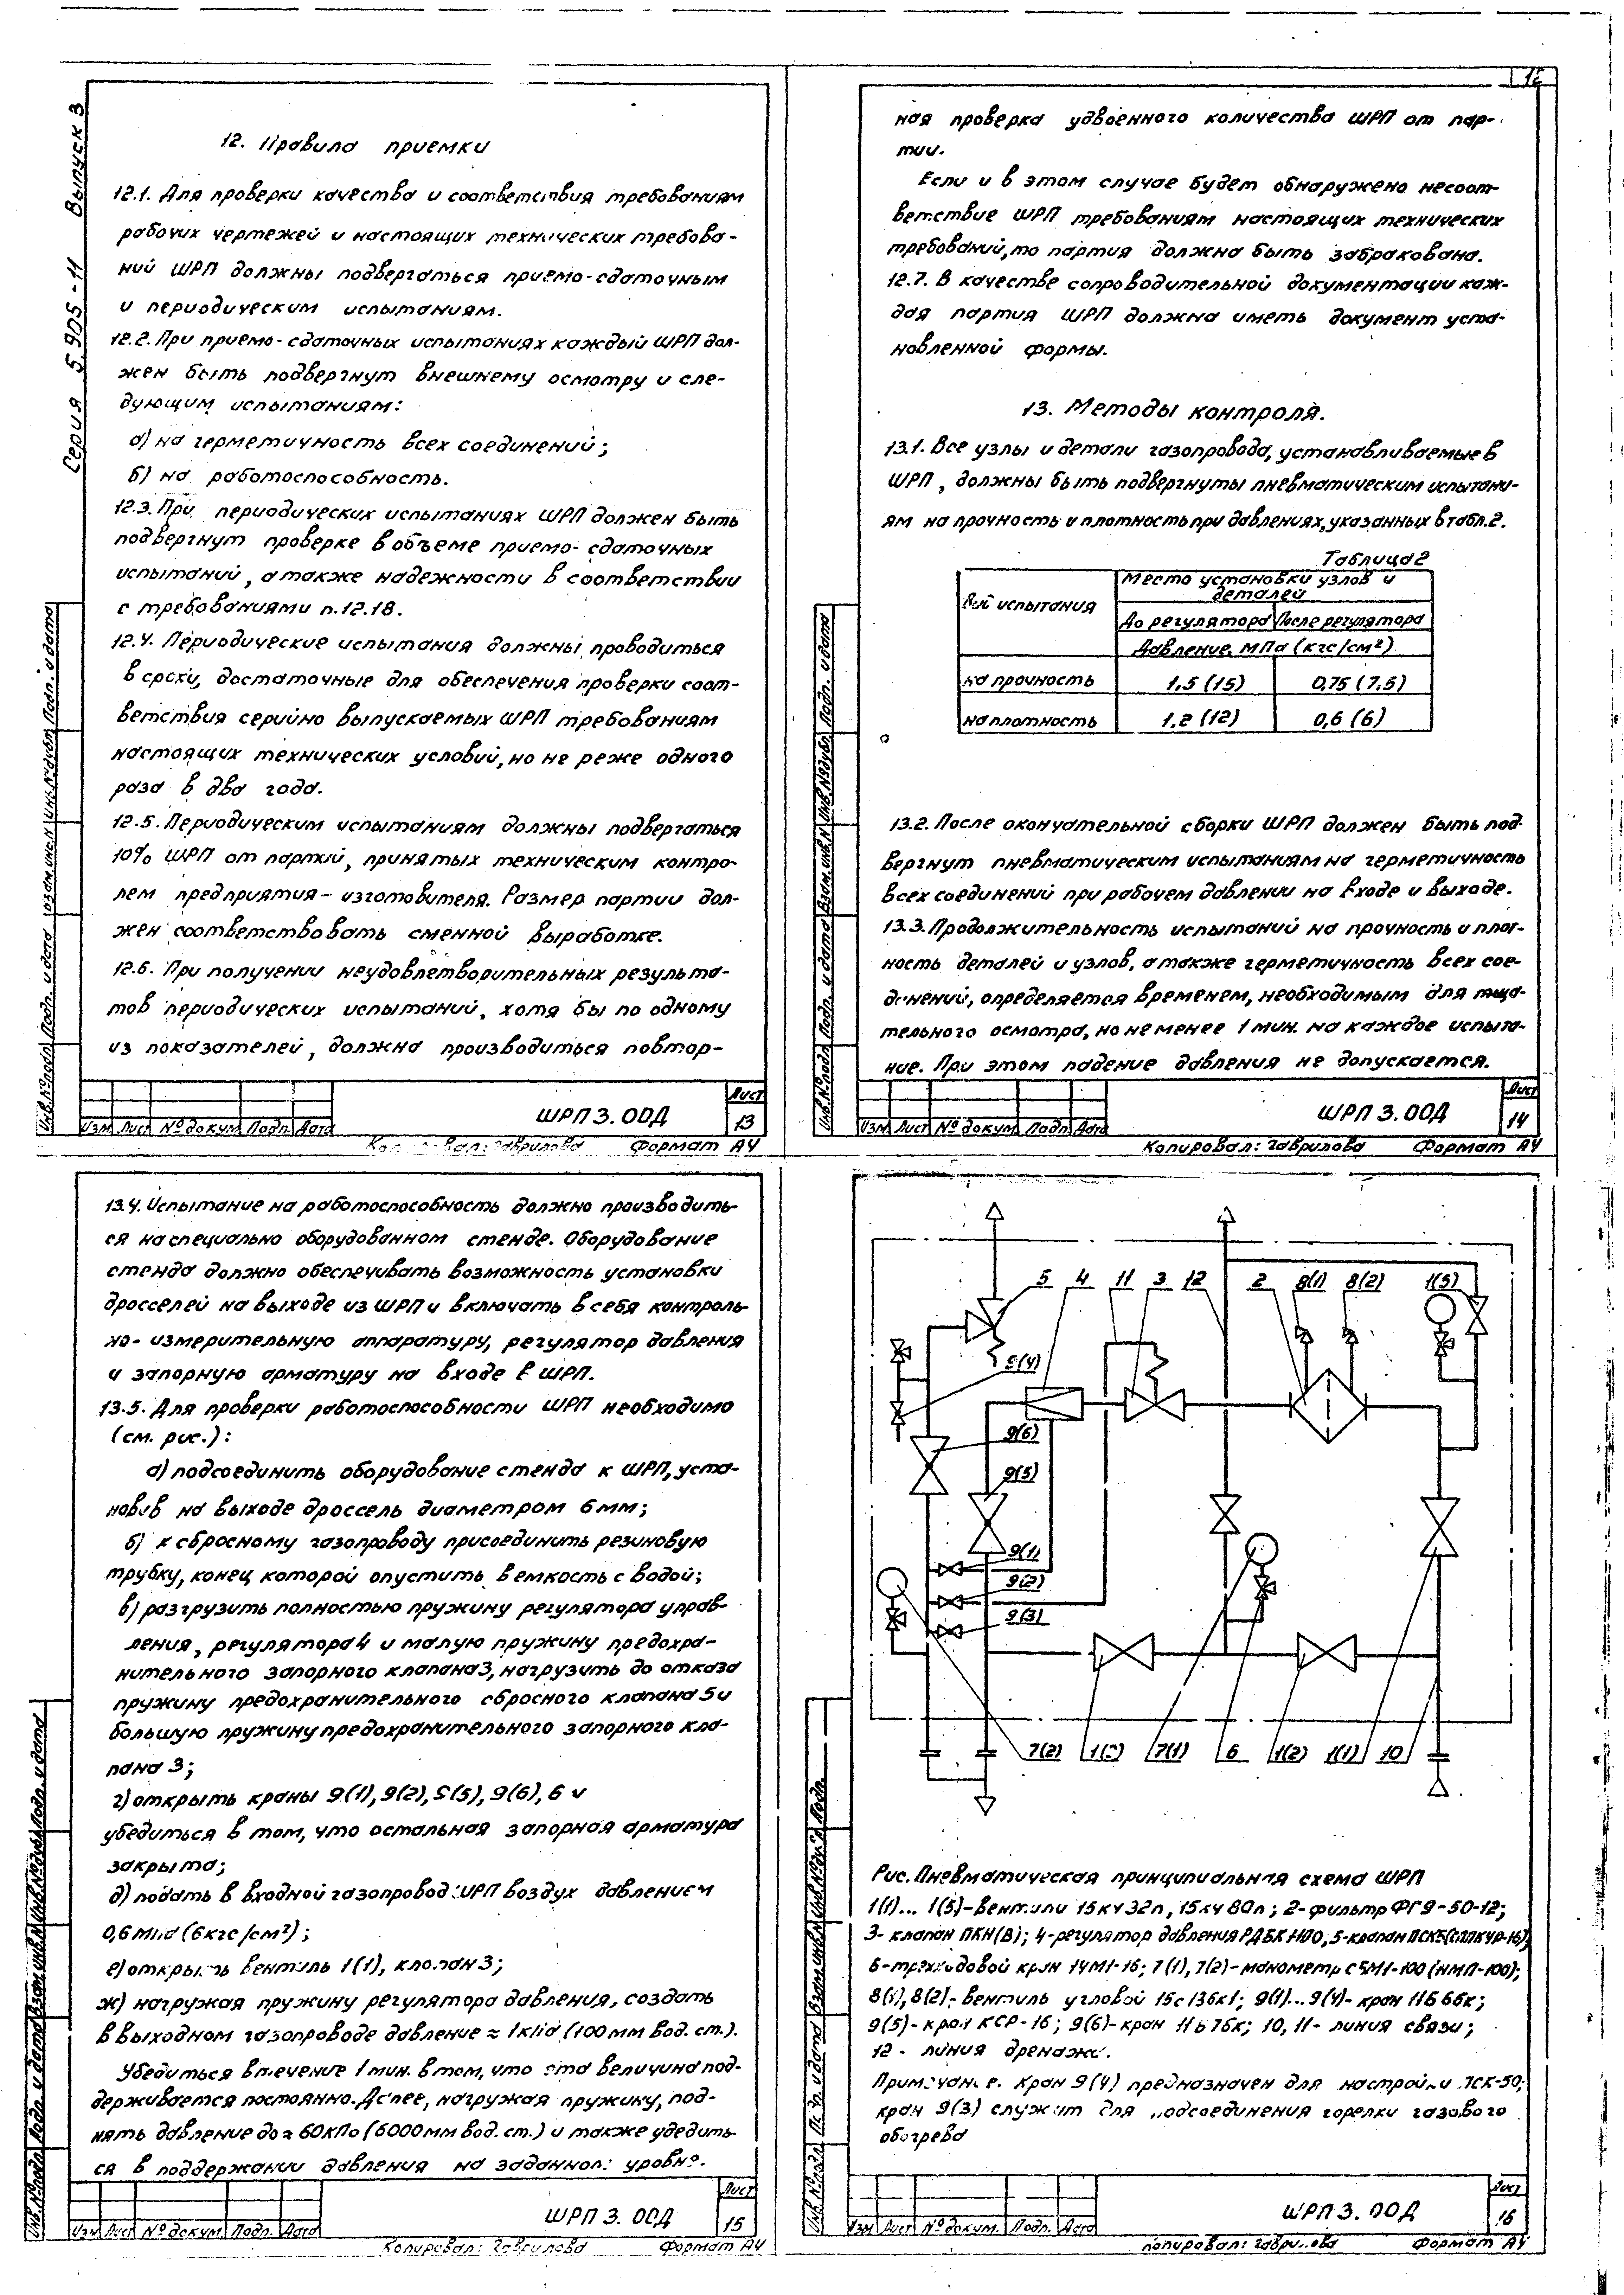 Серия 5.905-11 Выпуск 3
12. Правила приемки
12.1. Для проверки качества и соответствия требованиям
рабочих чертежей и настоящих технических требова-
ний ШРП должны подвергаться приемо-сдаточным
и периодическим испытаниям.
12.2. При приемо-сдаточных испытаниях каждый ШРП дол-
жен быть подвергнут внешнему осмотру и сле-
дующим испытаниям:
а) на герметичность всех соединений;
б) на работоспособность.
12.3. При периодических испытаниях ШРП должен быть
подвергнут проверке в объеме приемо-сдаточных
испытаний, а также надежности в соответствии
с требованиями п.12.18.
12.4. Периодические испытания должны проводиться
в сроки, достаточные для обеспечения проверки соот-
ветствия серийно выпускаемых ШРП требованиям
настоящих технических условий, но не реже одного
раза в два года.
12.5. Периодическим испытаниям должны подвергаться
10% ШРП от партий, принятых техническим контро-
лем предприятия-изготовителя. Размер партии дол-
жен соответствовать сменной выработке.
12.6. При получении неудовлетворительных результа-
тов периодических испытаний, хотя бы по одному
из показателей, должна производиться повтор-
Инв.№подл. Подп. и дата Взам.инв.№ Инв.№дубл. Подп. и дата
Изм Лист № докум Подп. Дата
ШРП 3.00Д
Лист
13
Формат А4
12
ная проверка удвоенного количества ШРП от пар-
тии.
Если и в этом случае будет обнаружено несоот-
ветствие ШРП требованиям настоящих технических
требований, то партия должна быть забракована.
12.7. В качестве сопроводительной документации каж-
дая партия ШРП должна иметь документ уста-
новленной формы.
13. Методы контроля.
13.1. Все узлы и детали газопровода, устанавливаемые в
ШРП, должны быть подвергнуты пневматическим испытани-
ям на прочность и плотность при давлениях, указанных в табл.2.
Таблица 2
Вид испытания
Место установки узлов и
деталей
До регулятора После регулятора
Давление, МПа (кгс/см²)
на прочность 1,5 (15) 0,75 (7,5)
на плотность 1,2 (12) 0,6 (6)
13.2. После окончательной сборки ШРП должен быть под-
вергнут пневматическим испытаниям на герметичность
всех соединений при рабочем давлении на входе и выходе.
13.3. Продолжительность испытаний на прочность и плот-
ность деталей и узлов, а также герметичность всех сое-
динений, определяется временем, необходимым для тща-
тельного осмотра, но не менее 1 мин. на каждое испыта-
ние. При этом падение давления не допускается.
Инв.№подл. Подп. и дата Взам.инв.№ Инв.№дубл. Подп. и дата
Изм Лист № докум Подп. Дата
ШРП 3.00Д
Лист
14
Копировал: Гаврилова Формат А4
13.4. Испытание на работоспособность должно производить-
ся на специально оборудованном стенде. Оборудование
стенда должно обеспечивать возможность установки
дросселей на выходе из ШРП и включать в себя контроль-
но-измерительную аппаратуру, регулятор давления
и запорную арматуру на входе в ШРП.
13.5. Для проверки работоспособности ШРП необходимо
(см. рис.):
а) подсоединить оборудование стенда к ШРП, уста-
новив на выходе дроссель диаметром 6 мм;
б) к сбросному газопроводу присоединить резиновую
трубку, конец которой опустить в емкость с водой;
в) разгрузить полностью пружину регулятора управ-
ления, регулятора 4 и малую пружину предохра-
нительного запорного клапана 3, нагрузить до отказа
пружину предохранительного сбросного клапана 5 и
большую пружину предохранительного запорного кла-
пана 3;
г) открыть краны 9(1), 9(2), 9(5), 9(6), 6 и
убедиться в том, что остальная запорная арматура
закрыта;
д) подать в входной газопровод ШРП воздух давлением
0,6 МПа (6 кгс/см²);
е) открыть вентиль 1(1), клапан 3;
ж) нагружая пружину регулятора давления, создать
в выходном газопроводе давление ≈ 1 кПа (100 мм вод. ст.).
Убедиться в течение 1 мин. в том, что эта величина под-
держивается постоянно. Далее, нагружая пружину, под-
нять давление до ≈ 60 кПа (6000 мм вод. ст.) и также убедить-
ся в поддержании давления на заданном уровне.
Инв.№подл. Подп. и дата Взам.инв.№ Инв.№дубл. Подп. и дата
Изм Лист № докум Подп. Дата
ШРП 3.00Д
Лист
15
Копировал: Гаврилова Формат А4
5 4 11 3 12 2 8(1) 8(2) 1(5)
5(4)
9(6)
9(5)
9(1)
9(2)
9(3)
7(2) 1(3) 7(1) 6 1(2) 1(1) 10
Рис. Пневматическая принципиальная схема ШРП
1(1)... 1(5)-вентили 15кч32п, 15кч80п; 2-фильтр ФГ9-50-12;
3-клапан ПКН(В); 4-регулятор давления 5-клапан
6-трехходовой кран 14М1-16; 7(1), 7(2)-манометр (НМП-100);
8(1), 8(2)-вентиль угловой 9(1)...9(4)-кран 11Б6бк;
9(5)-кран КСР-16; 9(6)-кран 11Б7бк; 10, 11-линия связи;
12-линия дренажа.
Примечание. Кран 9(4) предназначен для настройки ПСК-50;
кран 9(3) служит для подсоединения горелки газового
обогрева
Инв.№подл. и дата Взам.инв.№ Подп.
Изм Лист № докум. Подп. Дата
ШРП 3.00Д
Лист
16
Копировал: Гаврилова Формат А4